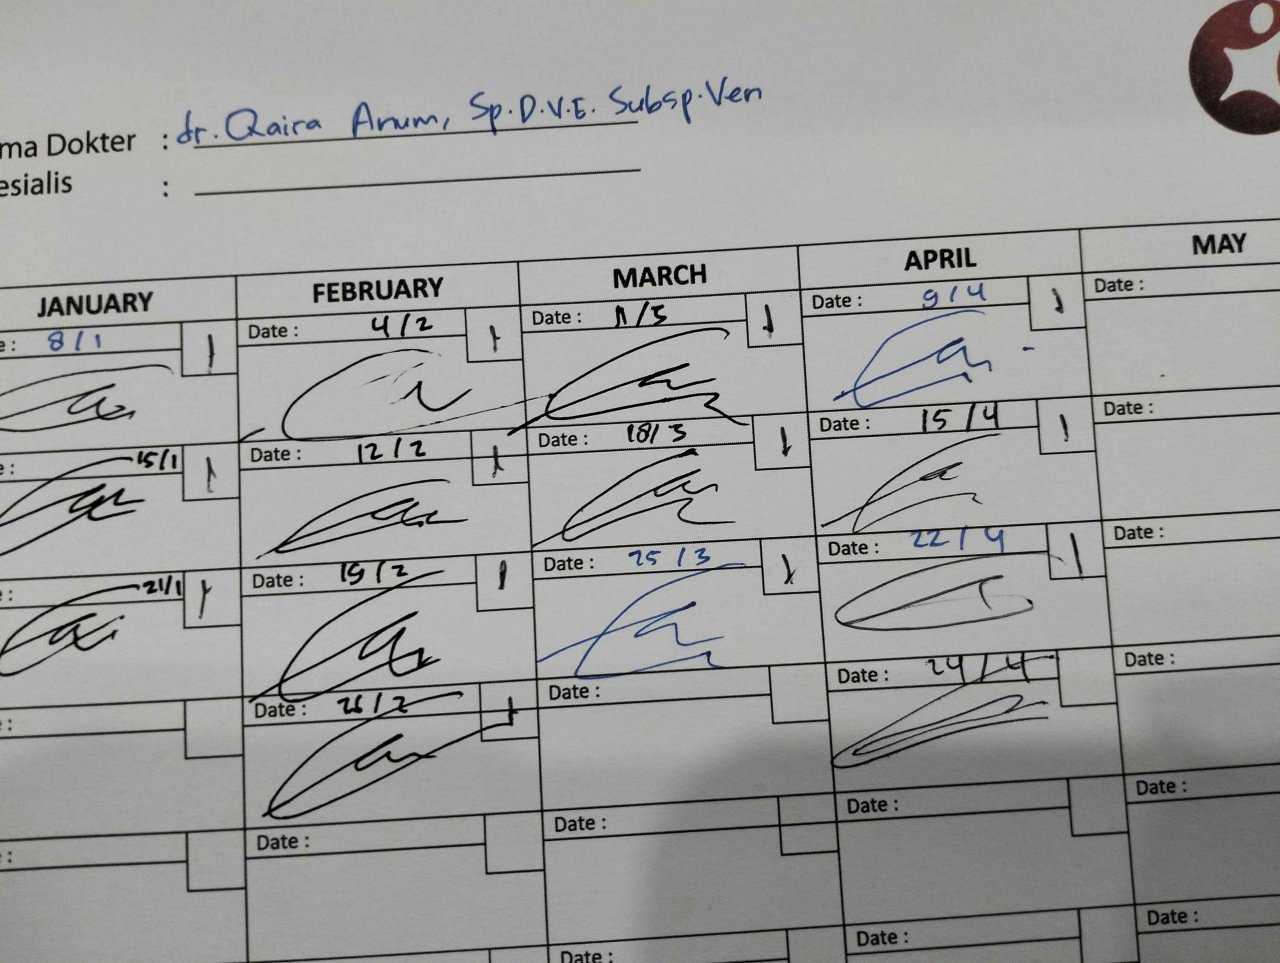 ma Dokter : dr. Qaira Anum, Sp.D.V.E. Subsp.Ven
esialis :
JANUARY FEBRUARY MARCH APRIL MAY
e : 8/1 1 Date : 4/2 1 Date : 11/3 1 Date : 9/4 1 Date :
e : 15/1 1 Date : 12/2 1 Date : 18/3 1 Date : 15/4 1 Date :
e : 21/1 1 Date : 19/2 1 Date : 25/3 1 Date : 22/4 1 Date :
: Date : 26/2 1 Date : Date : 24/4 Date :
: Date : Date : Date : Date :
Date : Date : Date :